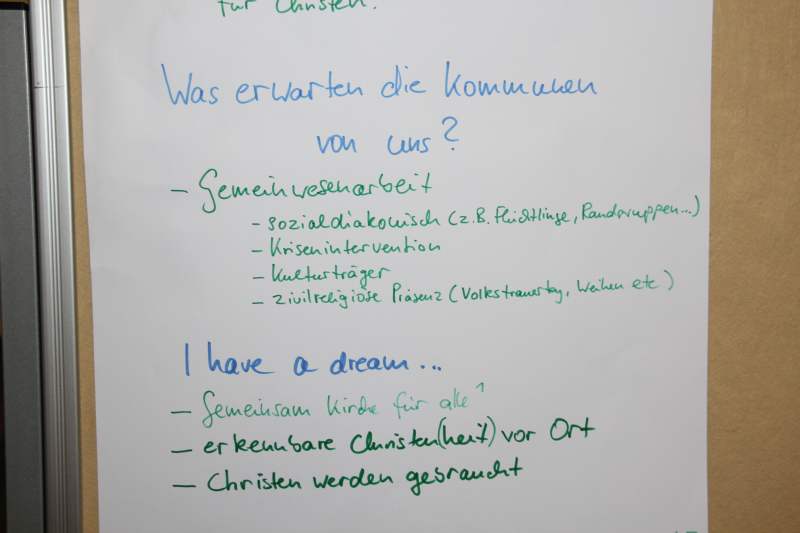 für Christen.
Was erwarten die Kommunen
von uns?
- Gemeinwesenarbeit
- sozialdiakonisch (z.B. Flüchtlinge, Randgruppen...)
- Krisenintervention
- Kulturträger
- zivilreligiöse Präsenz (Volkstrauertag, Weihen etc)
I have a dream...
- Gemeinsam Kirche für alle
- erkennbare Christen(heit) vor Ort
- Christen werden gebraucht